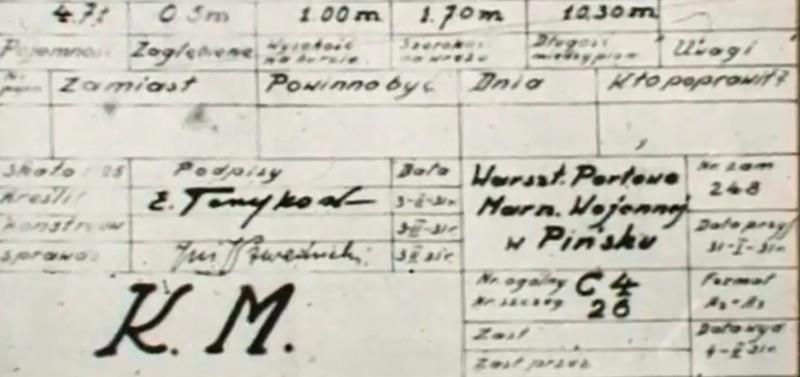 4.7t 0.5m 1.00m 1.70m 10.30m
Pojemność Zagłębienie Wysokość na burcie Szerokość na wręgu Długość międzypion Uwagi
Zamiast Powinno być Dnia Kto poprawił?
Skala 1:25 Podpisy Data Warszt. Portowe Nr. zam
Kreślił 3-II-31r. Marn. Wojennej 248
Konstruow 3-II-31r. w Pińsku Data przyj
Sprawdz 31-I-31r.
K. M.
Nr. ogólny C 4 Format
Nr. szczeg 26 A2-A3
Zast Data wyd
Zast przez 4-II-31r.